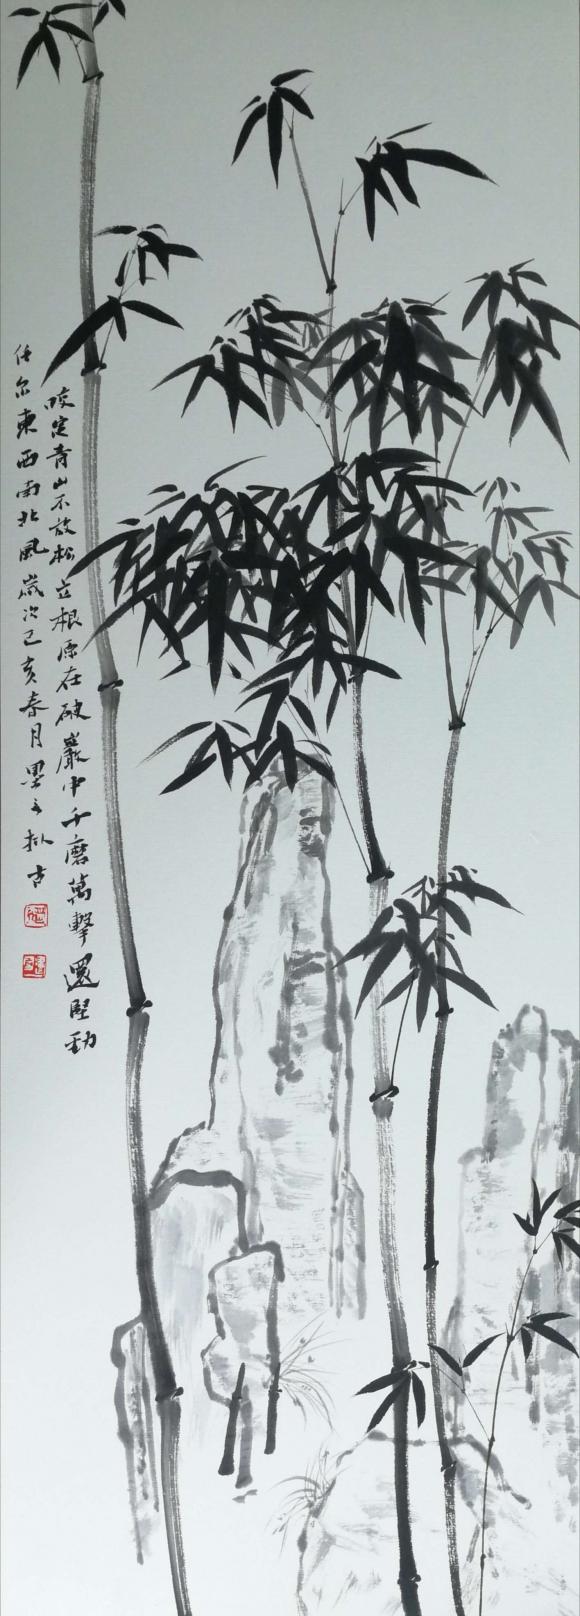 咬定青山不放松立根原在破巖中千磨萬擊還堅勁
任尔東西南北風歲次己亥春月墨之拟古